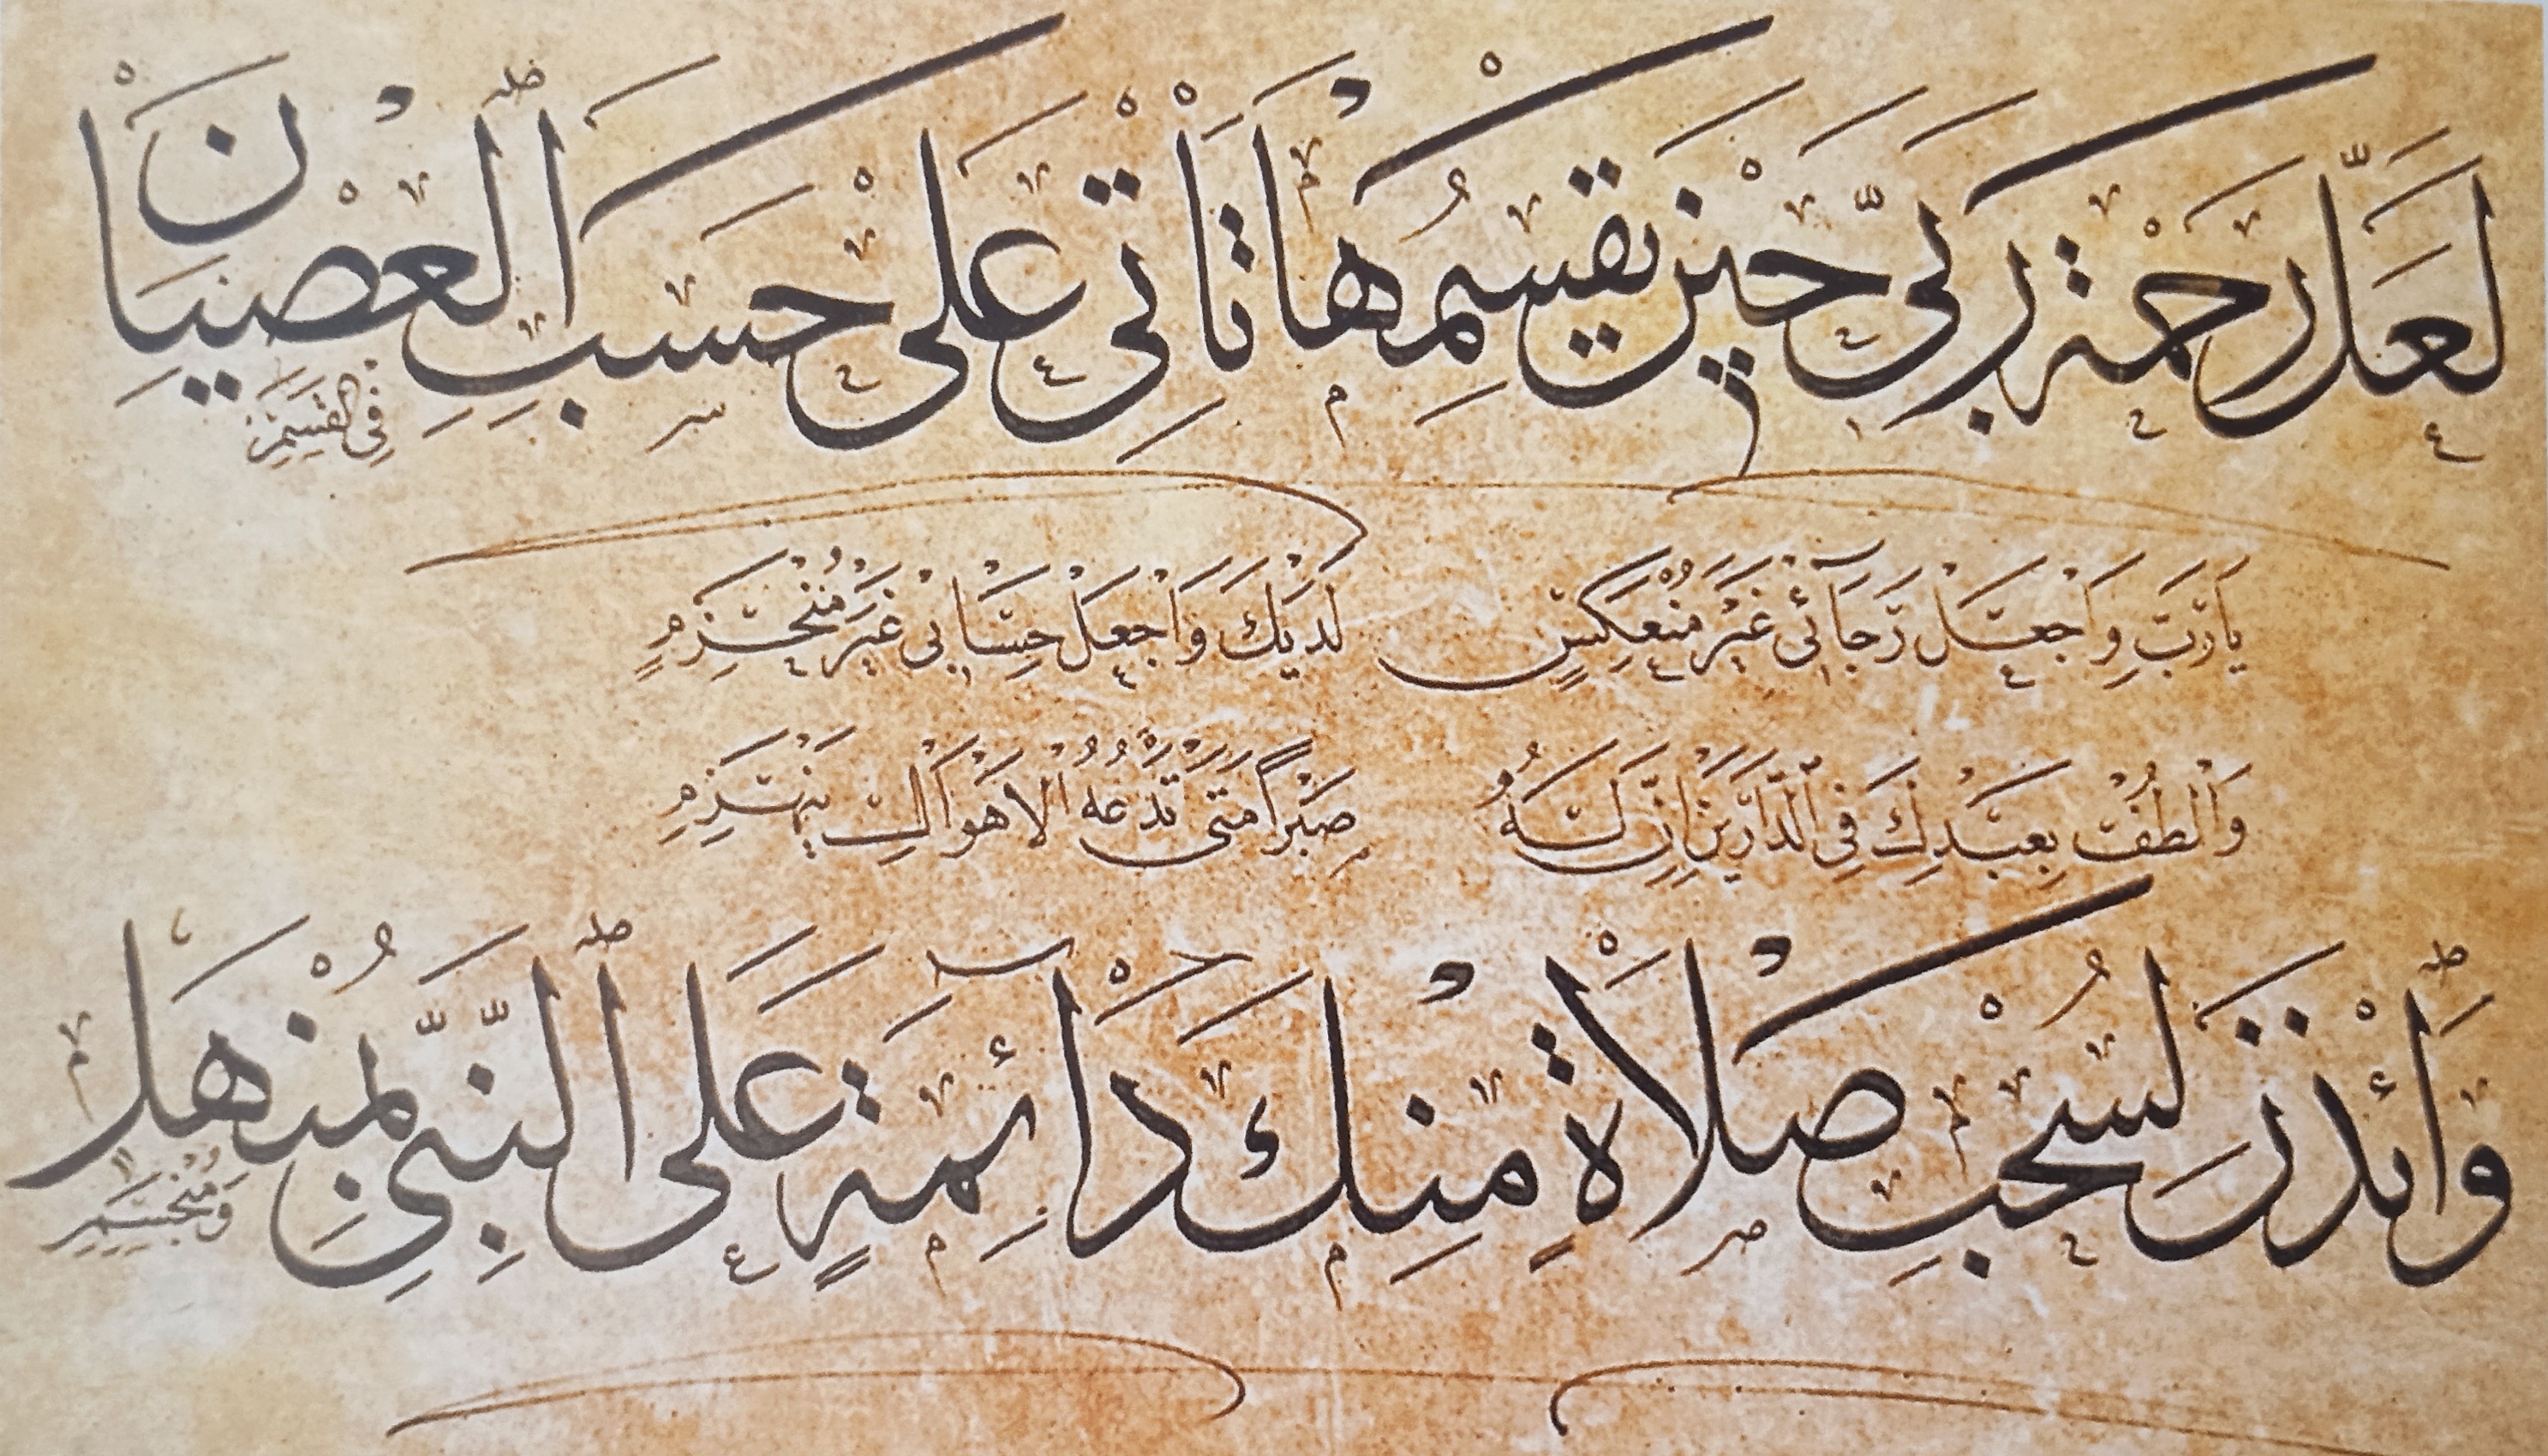 لَعَلَّ رَحْمَةَ رَبِّي حِيْنَ يَقْسِمُهَا تَأْتِي عَلَى حَسَبِ الْعِصْيَانِ
فِي الْقِسَمِ
يَا رَبِّ وَاجْعَلْ رَجَائِي غَيْرَ مُنْعَكِسٍ لَدَيْكَ وَاجْعَلْ حِسَابِي غَيْرَ مُنْخَرِمٍ
وَالْطُفْ بِعَبْدِكَ فِي الدَّارَيْنِ إِنَّ لَهُ صَبْرًا مَتَى تَدْعُهُ الْأَهْوَالُ يَنْهَزِمِ
وَأْذَنْ لِسُحْبِ صَلَاةٍ مِنْكَ دَائِمَةٍ عَلَى النَّبِيِّ بِمُنْهَلٍّ
وَمُنْسَجِمِ